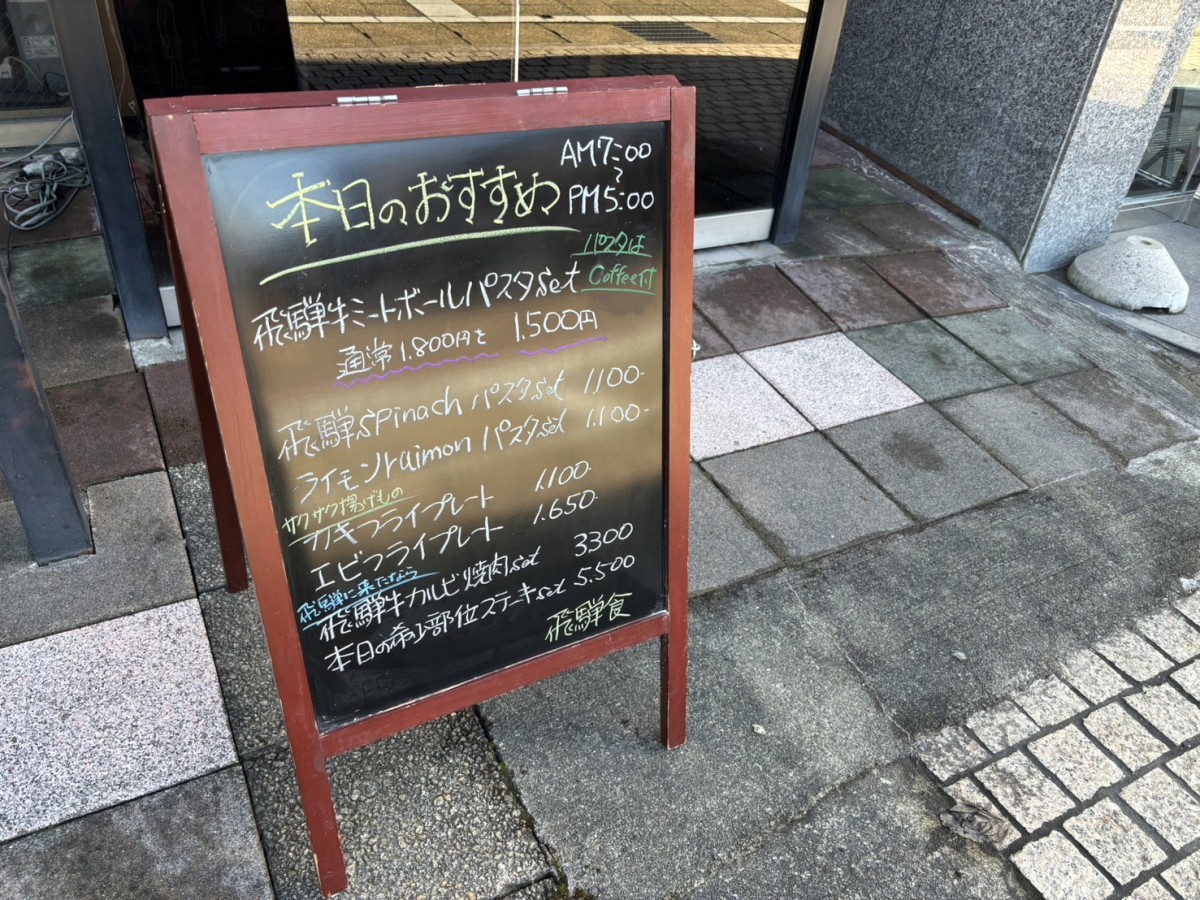 本日のおすすめ
AM7:00
〜
PM5:00
パスタは
Coffee付
飛騨牛ミートボールパスタset
通常1.800円を 1.500円
飛騨spinachパスタset 1.100-
ライモンraimonパスタset 1.100-
サクサク揚げもの
カキフライプレート 1.100-
エビフライプレート 1.650-
飛騨に来たなら
飛騨牛カルビ焼肉set 3300
本日の希少部位ステーキset 5.500
飛騨食